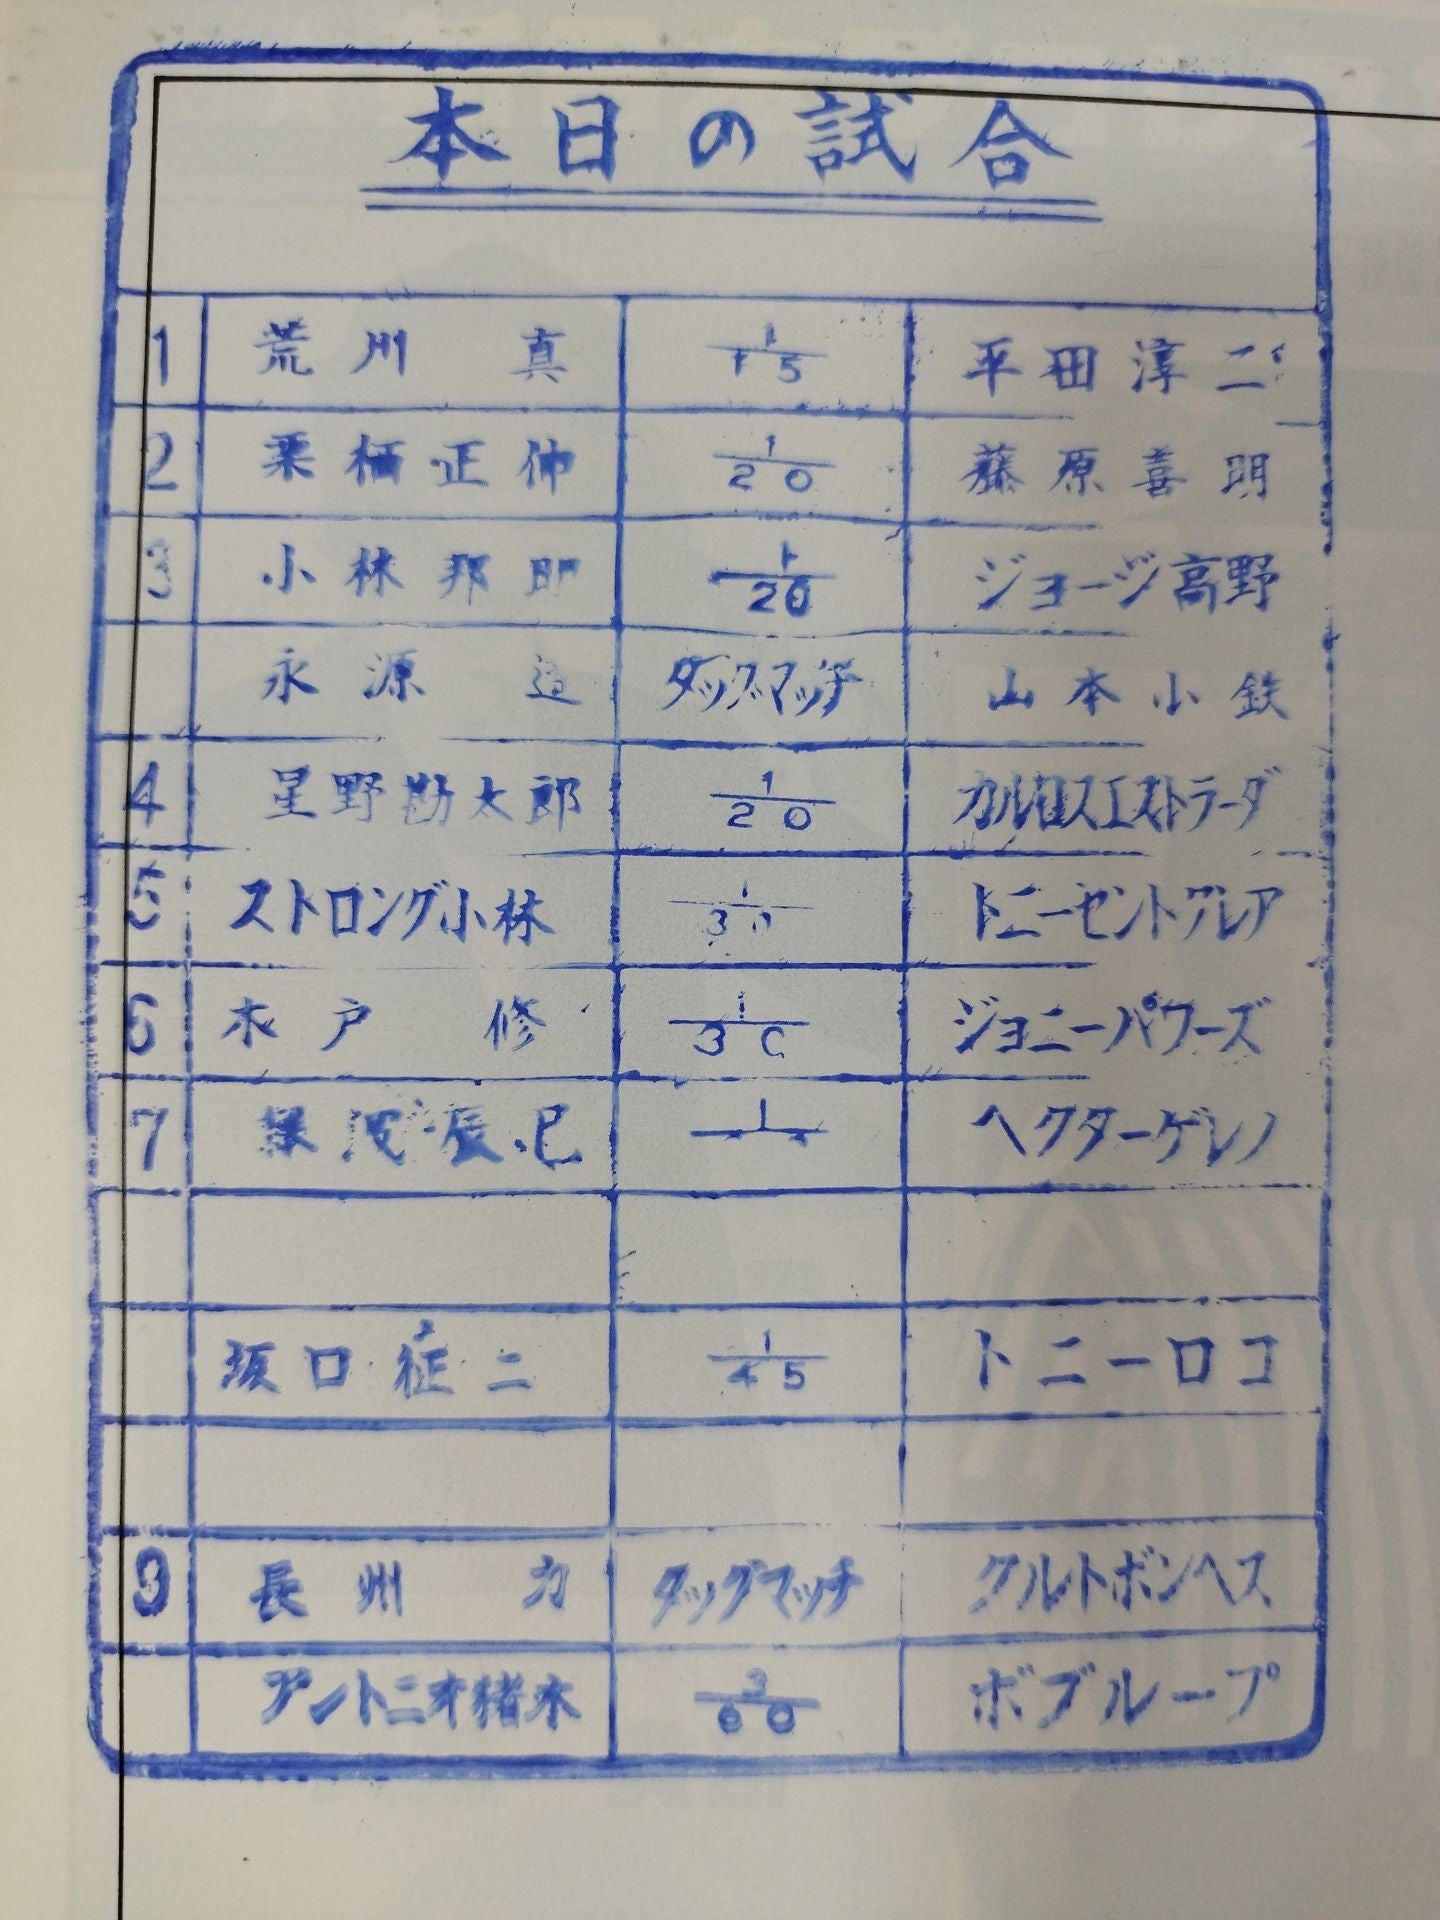 本日の試合
1 荒川真 1/15 平田淳二
2 栗栖正伸 1/20 藤原喜明
3 小林邦明 1/20 ジョージ高野
永源遥 タッグマッチ 山本小鉄
4 星野勘太郎 1/20 カルロスエストラーダ
5 ストロング小林 1/30 トニーセントクレア
6 木戸修 1/30 ジョニーパワーズ
7 藤波辰巳 1/ ヘクターゲレノ
坂口征二 1/45 トニーロコ
9 長州力 タッグマッチ クルトボンヘス
アントニオ猪木 3/60 ボブループ